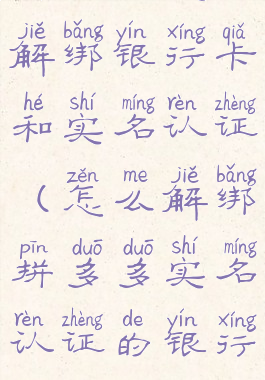 jiě bǎng yín xíng qiǎ
解绑银行卡
hé shí míng rèn zhèng
和实名认证
zěn me jiě bǎng
（怎么解绑
pīn duō duō shí míng
拼多多实名
rèn zhèng de yín xíng
认证的银行